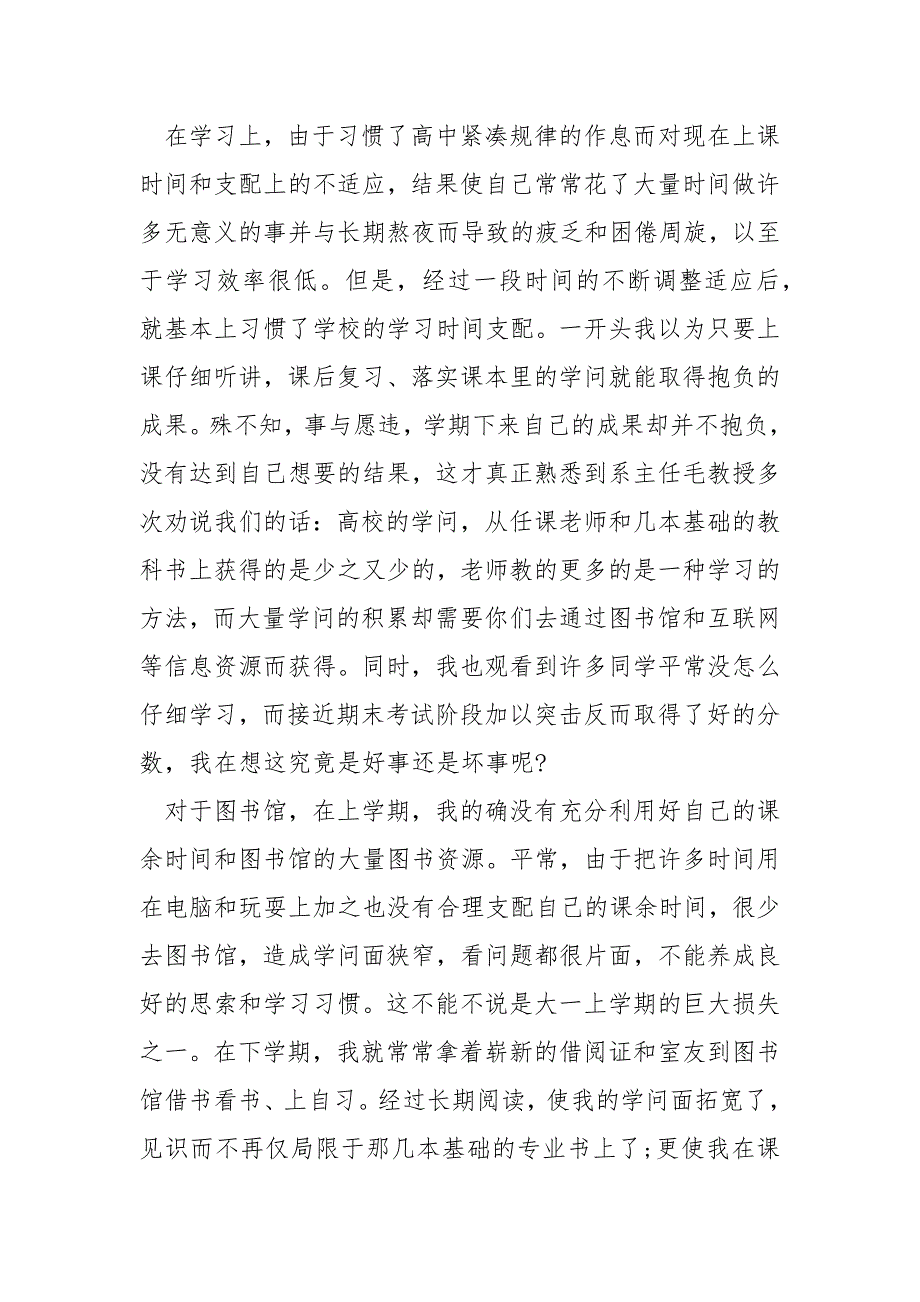 在学习上，由于习惯了高中紧凑规律的作息而对现在上课
时间和支配上的不适应，结果使自己常常花了大量时间做许
多无意义的事并与长期熬夜而导致的疲乏和困倦周旋，以至
于学习效率很低。但是，经过一段时间的不断调整适应后，
就基本上习惯了学校的学习时间支配。一开头我以为只要上
课仔细听讲，课后复习、落实课本里的学问就能取得抱负的
成果。殊不知，事与愿违，学期下来自己的成果却并不抱负，
没有达到自己想要的结果，这才真正熟悉到系主任毛教授多
次劝说我们的话：高校的学问，从任课老师和几本基础的教
科书上获得的是少之又少的，老师教的更多的是一种学习的
方法，而大量学问的积累却需要你们去通过图书馆和互联网
等信息资源而获得。同时，我也观看到许多同学平常没怎么
仔细学习，而接近期末考试阶段加以突击反而取得了好的分
数，我在想这究竟是好事还是坏事呢?
对于图书馆，在上学期，我的确没有充分利用好自己的课
余时间和图书馆的大量图书资源。平常，由于把许多时间用
在电脑和玩耍上加之也没有合理支配自己的课余时间，很少
去图书馆，造成学问面狭窄，看问题都很片面，不能养成良
好的思索和学习习惯。这不能不说是大一上学期的巨大损失
之一。在下学期，我就常常拿着崭新的借阅证和室友到图书
馆借书看书、上自习。经过长期阅读，使我的学问面拓宽了，
见识而不再仅局限于那几本基础的专业书上了;更使我在课